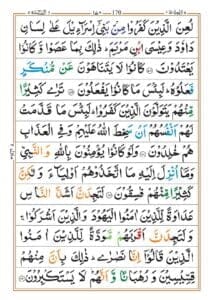 170
لُعِنَ الَّذِيْنَ كَفَرُوْا مِنْۢ بَنِيْۤ اِسْرَآءِيْلَ عَلٰى لِسَانِ
دَاوٗدَ وَعِيْسَى ابْنِ مَرْيَمَ ؕ ذٰلِكَ بِمَا عَصَوْا وَّكَانُوْا
يَعْتَدُوْنَ كَانُوْا لَا يَتَنَاهَوْنَ عَنْ مُّنْكَرٍ
فَعَلُوْهُ ؕ لَبِئْسَ مَا كَانُوْا يَفْعَلُوْنَ تَرٰى كَثِيْرًا
مِّنْهُمْ يَتَوَلَّوْنَ الَّذِيْنَ كَفَرُوْا ؕ لَبِئْسَ مَا قَدَّمَتْ
لَهُمْ اَنْفُسُهُمْ اَنْ سَخِطَ اللّٰهُ عَلَيْهِمْ وَفِى الْعَذَابِ
هُمْ خٰلِدُوْنَ وَلَوْ كَانُوْا يُؤْمِنُوْنَ بِاللّٰهِ وَالنَّبِيِّ
وَمَاۤ اُنْزِلَ اِلَيْهِ مَا اتَّخَذُوْهُمْ اَوْلِيَآءَ وَلٰكِنَّ
كَثِيْرًا مِّنْهُمْ فٰسِقُوْنَ لَتَجِدَنَّ اَشَدَّ النَّاسِ
عَدَاوَةً لِّلَّذِيْنَ اٰمَنُوا الْيَهُوْدَ وَالَّذِيْنَ اَشْرَكُوْا ۚ
وَلَتَجِدَنَّ اَقْرَبَهُمْ مَّوَدَّةً لِّلَّذِيْنَ اٰمَنُوا
الَّذِيْنَ قَالُوْۤا اِنَّا نَصٰرٰى ؕ ذٰلِكَ بِاَنَّ مِنْهُمْ
قِسِّيْسِيْنَ وَرُهْبَانًا وَّاَنَّهُمْ لَا يَسْتَكْبِرُوْنَ